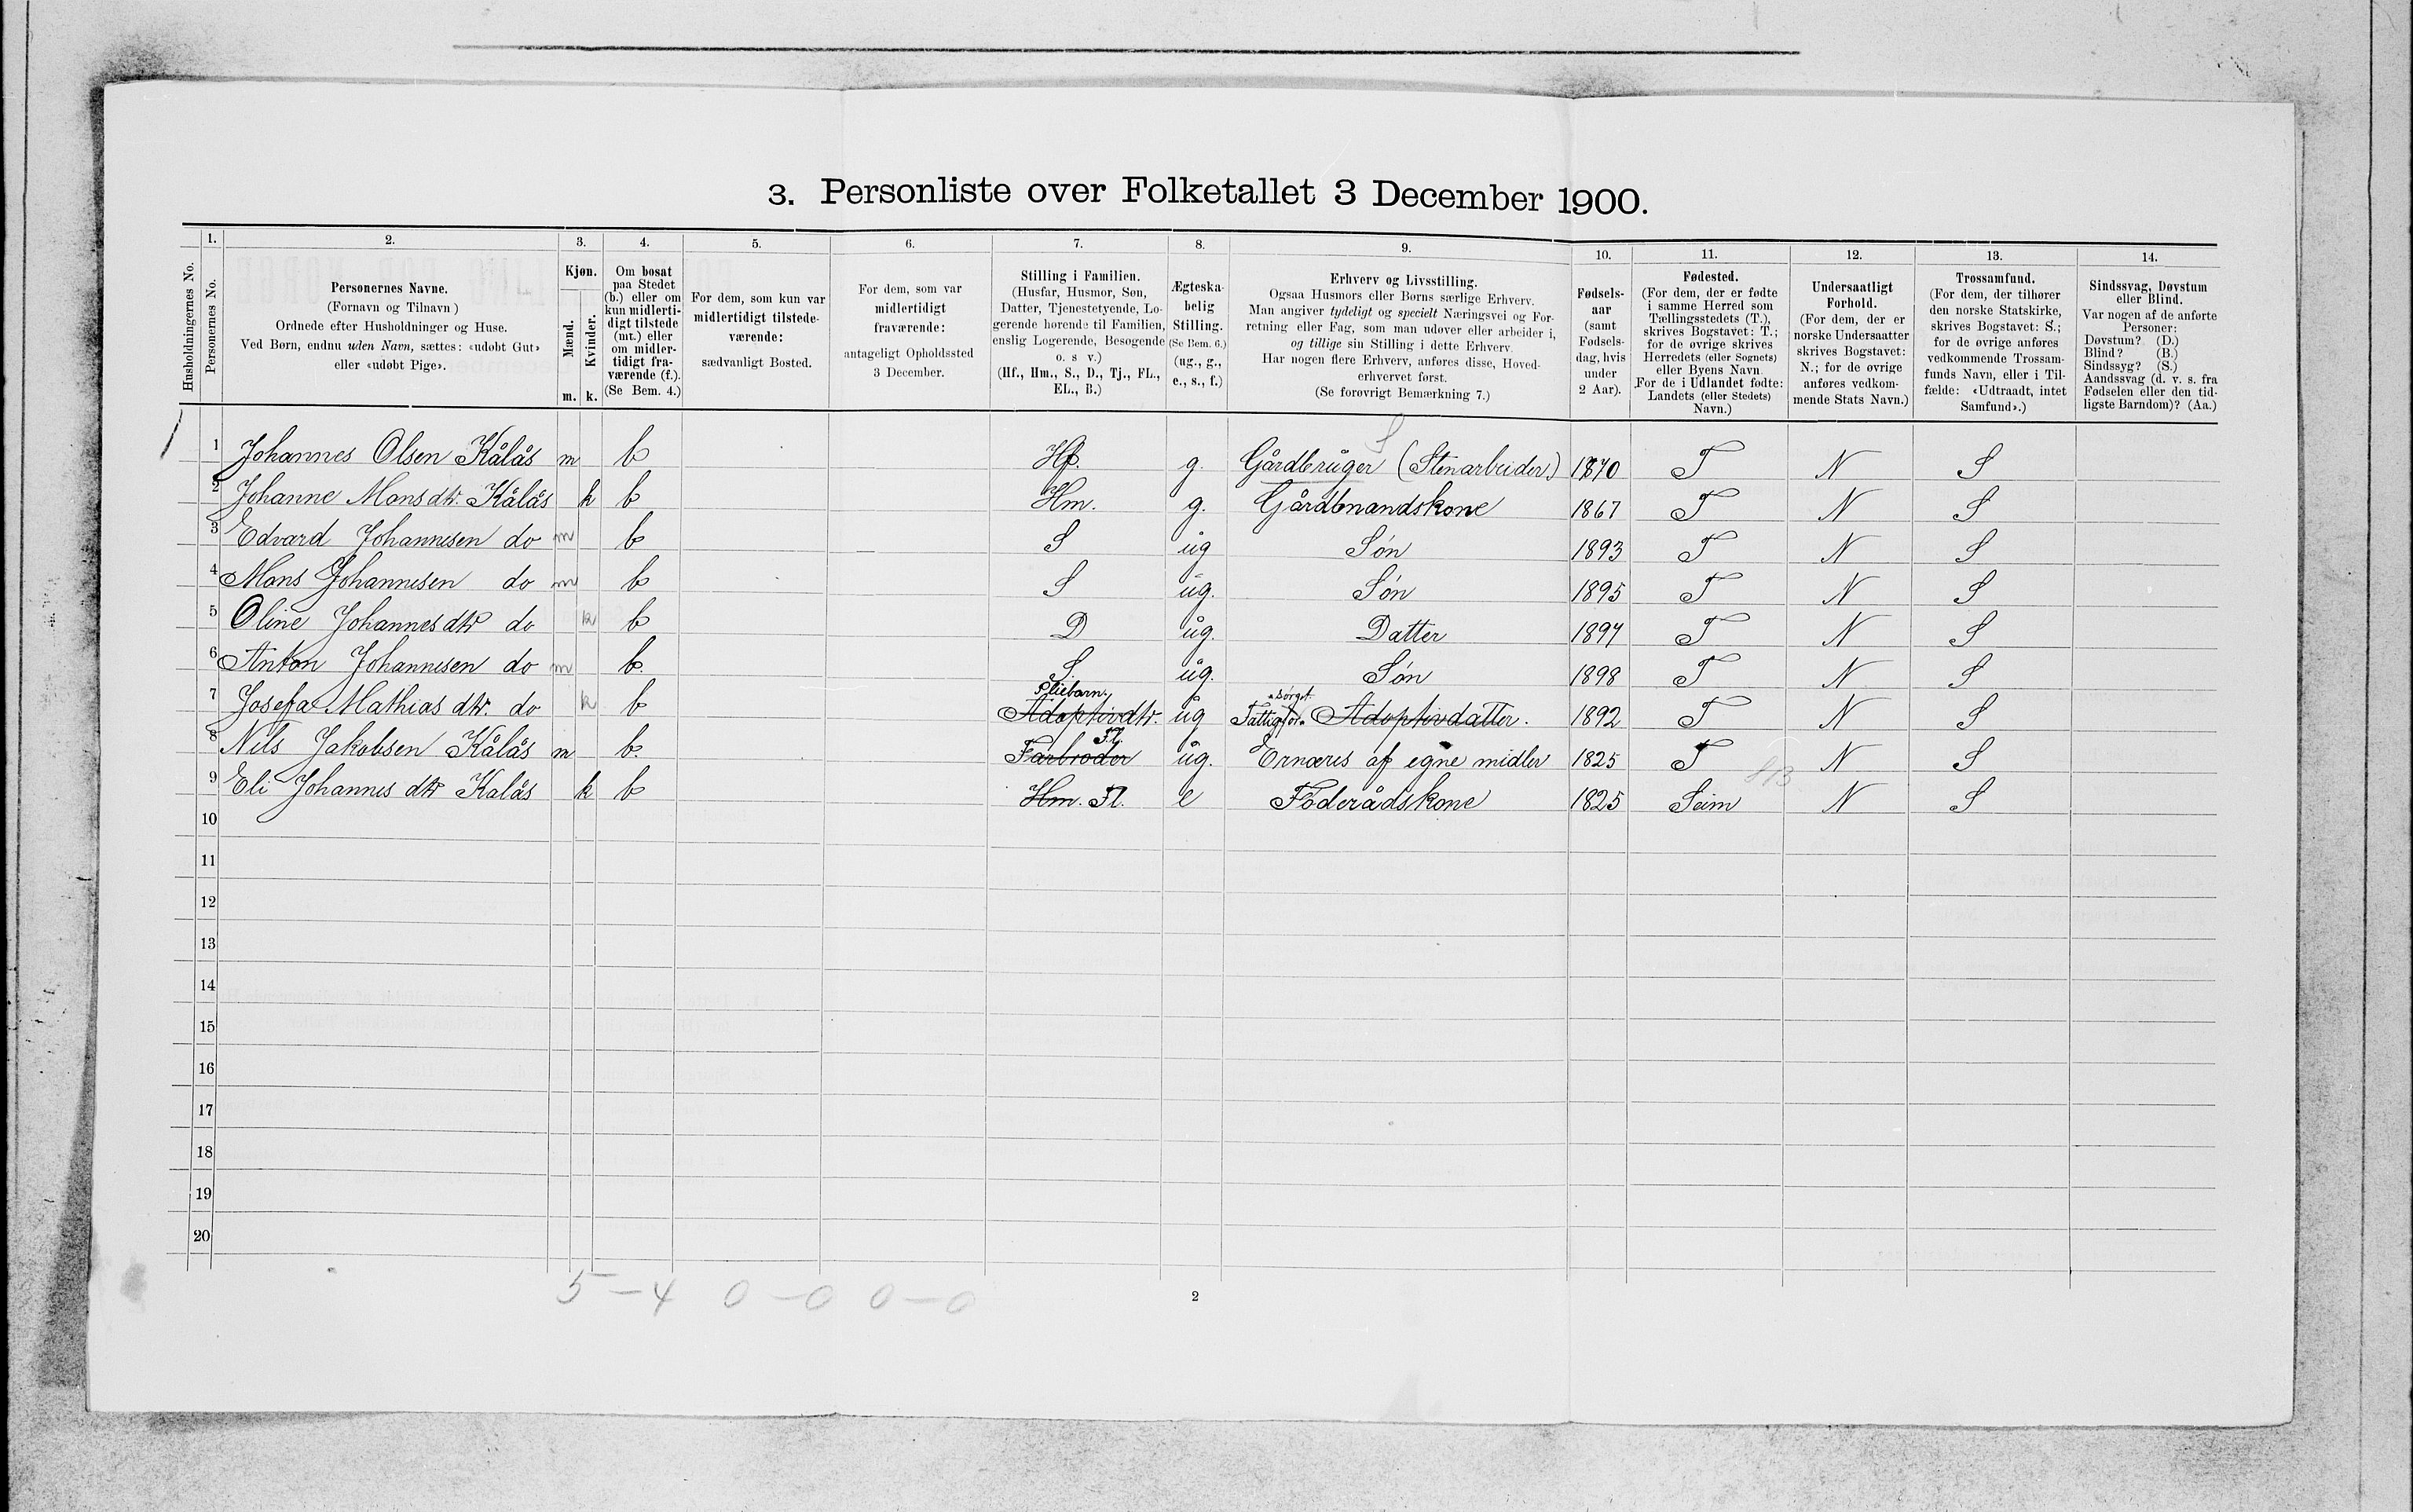 3. Personliste over Folketallet 3 December 1900.
1. 2. 3. 4. 5. 6. 7. 8. 9. 10. 11. 12. 13. 14.
Husholdningernes No.
Personernes No.
Personernes Navne.
(Fornavn og Tilnavn)
Ordnede efter Husholdninger og Huse.
Ved Børn, endnu uden Navn, sættes: «udøbt Gut»
eller «udøbt Pige».
Kjøn.
Mænd.
Kvinder.
m. k.
Om bosat
paa Stedet
(b.) eller om
kun midlerti-
digt tilstede
(mt.) eller
om midler-
tidigt fra-
værende (f.).
(Se Bem. 4.)
For dem, som kun var
midlertidigt tilstede-
værende:
sædvanligt Bosted.
For dem, som var
midlertidigt
fraværende:
antageligt Opholdssted
3 December.
Stilling i Familien.
(Husfar, Husmor, Søn,
Datter, Tjenestetyende, Lo-
gerende hørende til Familien,
enslig Logerende, Besøgende
o. s v.)
(Hf., Hm., S., D., Tj., FL.,
EL., B.)
Ægteska-
belig
Stilling.
(Se Bem. 6.)
(ug., g.,
e., s., f.)
Erhverv og Livsstilling.
Ogsaa Husmors eller Børns særlige Erhverv.
Man angiver tydeligt og specielt Næringsvei og For-
retning eller Fag, som man udøver eller arbeider i,
og tillige sin Stilling i dette Erhverv.
Har nogen flere Erhverv, anføres disse, Hoved-
erhvervet først.
(Se forøvrigt Bemærkning 7.)
Fødsels-
aar
(samt
Fødsels-
dag, hvis
under
2 Aar).
Fødested.
(For dem, der er fødte
i samme Herred som
Tællingsstedets (T.),
skrives Bogstavet: T.;
for de øvrige skrives
Herredets (eller Sognets)
eller Byens Navn.
For de i Udlandet fødte:
Landets (eller Stedets)
Navn.)
Undersaatligt
Forhold.
(For dem, der er
norske Undersaatter
skrives Bogstavet:
N.; for de øvrige
anføres vedkom-
mende Stats Navn.)
Trossamfund.
(For dem, der tilhører
den norske Statskirke,
skrives Bogstavet: S.;
for de øvrige anføres
vedkommende Trossam-
funds Navn, eller i Til-
fælde: «Udtraadt, intet
Samfund».)
Sindssvag, Døvstum
eller Blind.
Var nogen af de anførte
Personer:
Døvstum? (D.)
Blind? (B.)
Sindssyg? (S.)
Aandssvag (d. v. s. fra
Fødselen eller den tid-
ligste Barndom)? (Aa.)
S
1 Johannes Olsen Kålås m b Hf. g. Gårdbrůger (Stenarbeider) 1870 T N S
2 Johanne Monsdtr. Kålås k b Hm. g. Gårdmandskone 1867 T N S
3 Edvard Johannesen do m b S ůg Søn 1893 T N S
4 Mons Johannesen do m b S ůg. Søn 1895 T N S
5 Oline Johannesdtr do k b D ůg. Datter 1897 T N S
6 Anton Johannesen do m b. S. ůg. Søn 1898 T N S
Pliebarn.
7 Josefa Mathias dtr. do k b Adoptivdtr. ůg Fattigfor- Adoptivdatter. 1892 T N S
Fl.
8 Nils Jakobsen Kålås m b. Farbroder ůg. Ernæres af egne midler 1825 T N S
9 Eli Johannes dtr Kalås k b Hm. Fl. e Föderådskone 1825 Seim N S
10
11
12
13
14
15
16
17
18
19
20
5 – 4 0 – 0 0 – 0
2